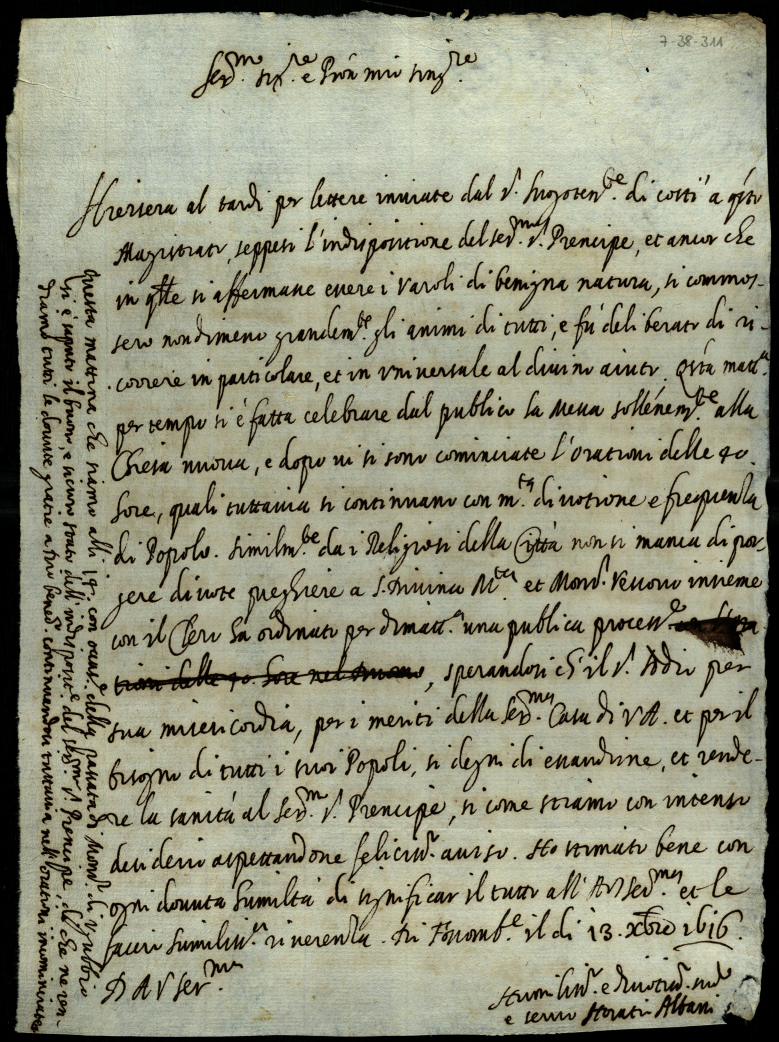 7-38-311
Ser.mo Sig.re e Pron mio sing.re
Hiersera al tardi per lettere inviate dal S.r Luogoten.te di costì à q.sto
Magistrato, seppesi l'indispositione del ser.mo S.r Prencipe, et ancor che
in q.lle si affermasse essere i Varoli di benigna natura, si commos-
sero nondimeno grandem.te gli animi di tutti, e fù deliberato di ri-
correre in particolare, et in universale al divino aiuto. Q.sta matt.a
per tempo si è fatta celebrare dal publico la Messa sollennem.te alla
Chiesa nuova, e dopo vi si sono cominciate l'orationi delle 40
hore, quali tuttavia si continuano con m.ta divotione e frequenza
di Popolo. Similm.te da i Religiosi della Città non si manca di por-
gere divote preghiere a S. Divina M.tà et Mons.r Vescovo insieme
con il Clero ha ordinato per dimatt.a una publica process.e
tioni delle 40 hore nel, sperandosi ch'il S.r Iddio per
sua misericordia, per i meriti della Ser.ma Casa di V.A. et per il
bisogno di tutti i suoi Popoli, si degni di essaudirne, et rende-
re la sanità al Ser.mo S.r Prencipe, si come stiamo con intenso
desiderio aspettandone feliciss.o aviso. Ho stimato bene con
ogni dovuta humiltà di significar il tutto all' A.V. Ser.ma et le
faccio humiliss.a riverenza. Di Fossomb.e il di 13 Xbre 1616.
D A V Ser.ma
Humiliss.o e divotiss.o sud.o
e servo Horatio Albani
Questa mattina che siamo alli 14 con occas.e della passata di Mons.r di Ugubbio
si è saputo il buono, e sicuro stato dell'indisposit.e del ser.mo S.r Prencipe, di che ne ren-
diamo tutti le dovute gratie a Dio bened.o continuandosi tuttavia nell'orationi incominciate